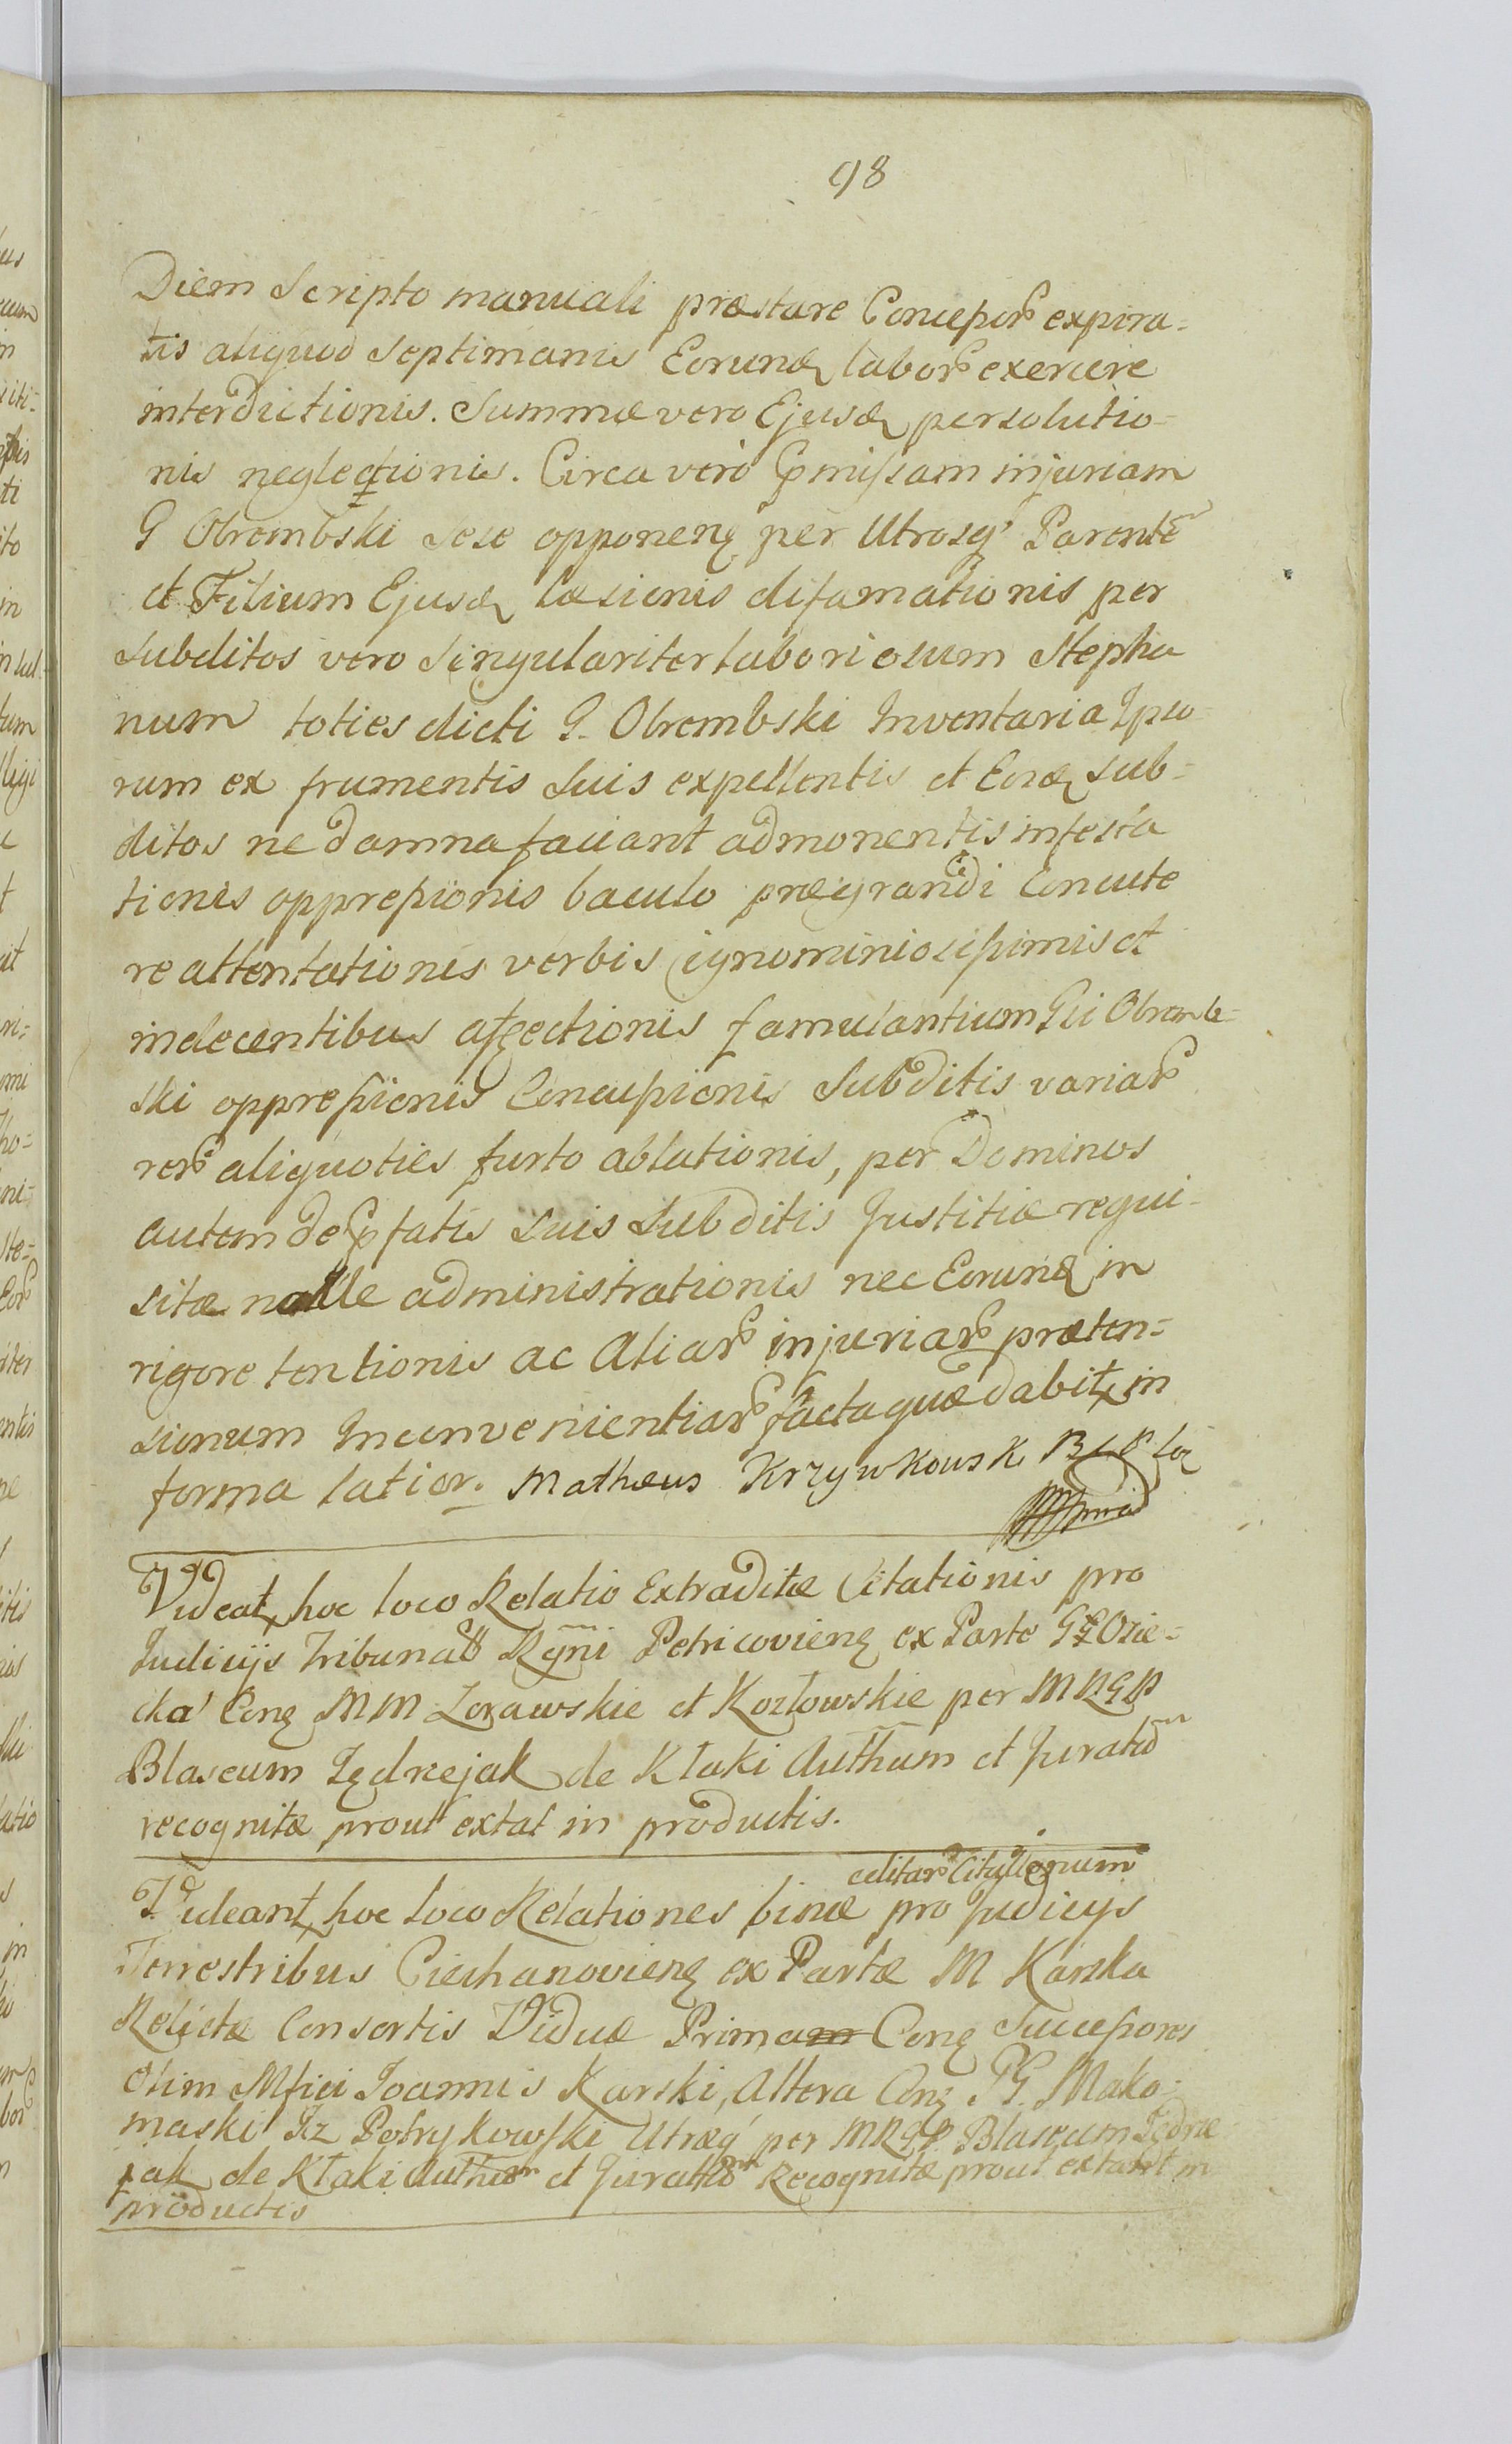 98
Diem Scripto manuali præstare Concessor expira=
tis aliquod Septimanis Eorund labor exercere
interdictionis. Summæ vero Ejusd persolutio=
nis neglectionis. Circa vero pmissam injuriam
G Obrembski sese opponens per Utrosq Parente
et Filium Ejusd læsionis difamationis per
Subditos vero Singulariter laboriosum Stepha
num toties dicti G. Obrembski Inventaria Ipso=
rum ex frumentis Suis expellentis et Eord sub=
ditos ne damna faciant admonentis infesta
tionis oppressionis baculo prægrandi Concute
re attentationis verbis ignominiosissimis et
indecentibus affectionis famulantium Gsi Obremb=
ski oppressionis Concussionis Subditis variar
rer aliquoties furto ablationis, per Dominos
autem de pfatis suis Subditis Justitiæ requi=
sitæ nolle administrationis nec Eorund in
rigore tentionis ac Aliar injuriar præten=
sionum Inconvenientiar facta quæ dabit in
forma latior. Mathæus Krzywkowsk
Videat hoc loco Relatio Extraditæ Citationis pro
Judicijs Tribunal Rgni Petricoviens ex Parte
cka Cong MM Zorawskie et Kozłowskie per MRGP
Blaseum Jędrzejak de Kłaki Authum et Juratu
recognitæ prout extat in productis.
editar Citationum
Videant hoc loco Relationes binæ pro Judicijs
Terrestribus Ciechanoviens ex Partæ M Karska
Relictæ Consortis Viduæ Primam Cong Successores
Olim Mfici Joannis Karski, Altera Cong PG. Mako=
maski Petrykowski Utræq per MRGP Blaseum Jędrze
jak de Kłaki Authum et Juratum Recognitæ prout extant in
productis